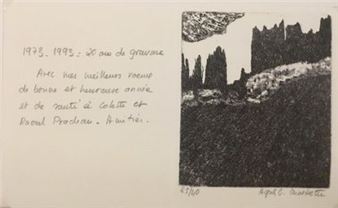 1973-1993 = 20 ans de gravure
Avec nos meilleurs voeux
de bonne et heureuse année
et de santé à Colette et
Raoul Pradeau. Amitiés.